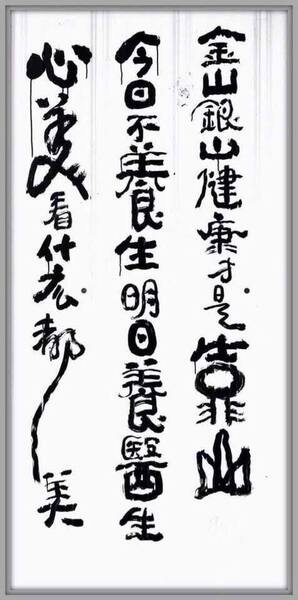 金山銀山健康才是靠山
今日不養生明日養醫生
心美看什麽都美